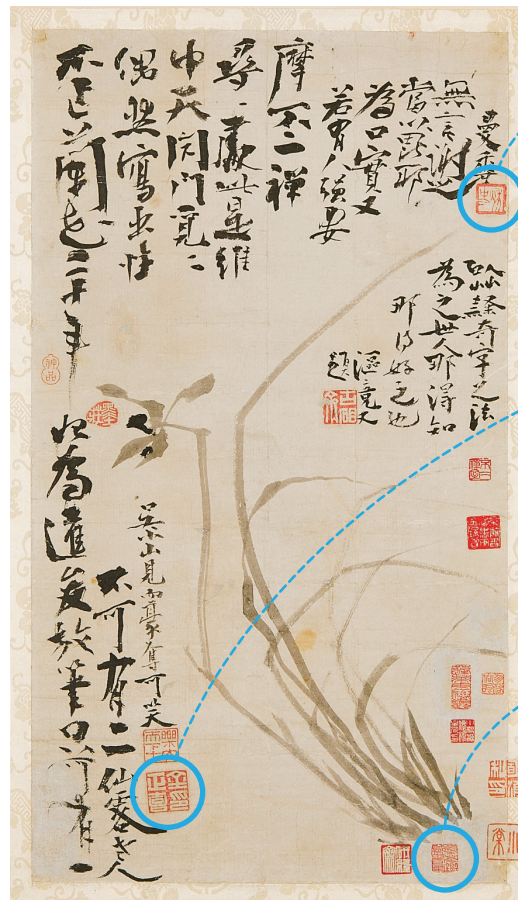 不作蘭花二十年
偶然寫出性
中天閉門覓〻
尋〻處此是維
摩不二禪
若有人強要
爲口實又
當以毘耶
無言謝之
曼香
以草隸奇字之法
爲之世人那得知
那得好之也
漚竟又
題
始爲達俊放筆只可有一
不可有二仙客老人
吳小山見而豪奪可笑